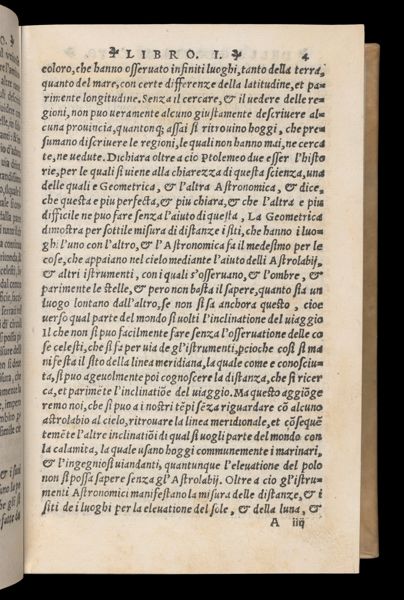 LIBRO. I. 4
coloro, che hanno osseruato infiniti luoghi, tanto della terra,
quanto del mare, con certe differenze della latitudine, et pa-
rimente longitudine. Senza il cercare, & il uedere delle re-
gioni, non puo ueramente alcuno giustamente descriuere al-
cuna prouincia, quantonq; assai si ritrouino hoggi, che pre-
sumano discriuere le regioni, le quali non hanno mai, ne cerca
te, ne uedute. Dichiara oltre a cio Ptolemeo due esser l'histo
rie, per le quali si uiene alla chiarezza di questa scienza, una
delle quali e Geometrica, & l'altra Astronomica, & dice,
che questa e piu perfecta, & piu chiara, & che l'altra e piu
difficile ne puo fare senza l'aiuto di questa, La Geometrica
dimostra per sottile misura di distanze i siti, che hanno i luo-
ghi l'uno con l'altro, & l'Astronomica fa il medesimo per le
cose, che appaiono nel cielo mediante l'aiuto delli Astrolabij,
& altri istrumenti, con i quali s'osseruano, & l'ombre, &
parimente le stelle, & pero non basta il sapere, quanto sia un
luogo lontano dall'altro, se non si sa anchora questo, cioe
uerso qual parte del mondo si uolti l'inclinatione del uiaggio
Il che non si puo facilmente fare senza l'osseruatione delle co
se celesti, che si fa per uia de gl'istrumenti, pcioche cosi si ma
nifesta il sito della linea meridiana, la quale come e conosciu-
ta, si puo ageuolmente poi cognoscere la distanza, che si ricer
ca, et parimẽte l'inclinatiõe del uiaggio. Ma questo aggiõge
remo noi, che si puo a i nostri tẽpi sẽza riguardare cõ alcuno
astrolabio al cielo, ritrouare la linea meridionale, et cõsequẽ
temẽte l'altre inclinatiõi di qual si uogli parte del mondo con
la calamita, la quale usano hoggi communemente i marinari,
& l'ingegniosi uiandanti, quantunque l'eleuatione del polo
non si possa sapere senza gl'Astrolabij. Oltre a cio gl'istru-
menti Astronomici manifestano la misura delle distanze, & i
siti de i luoghi per la eleuatione del sole, & della luna, &
A iiij